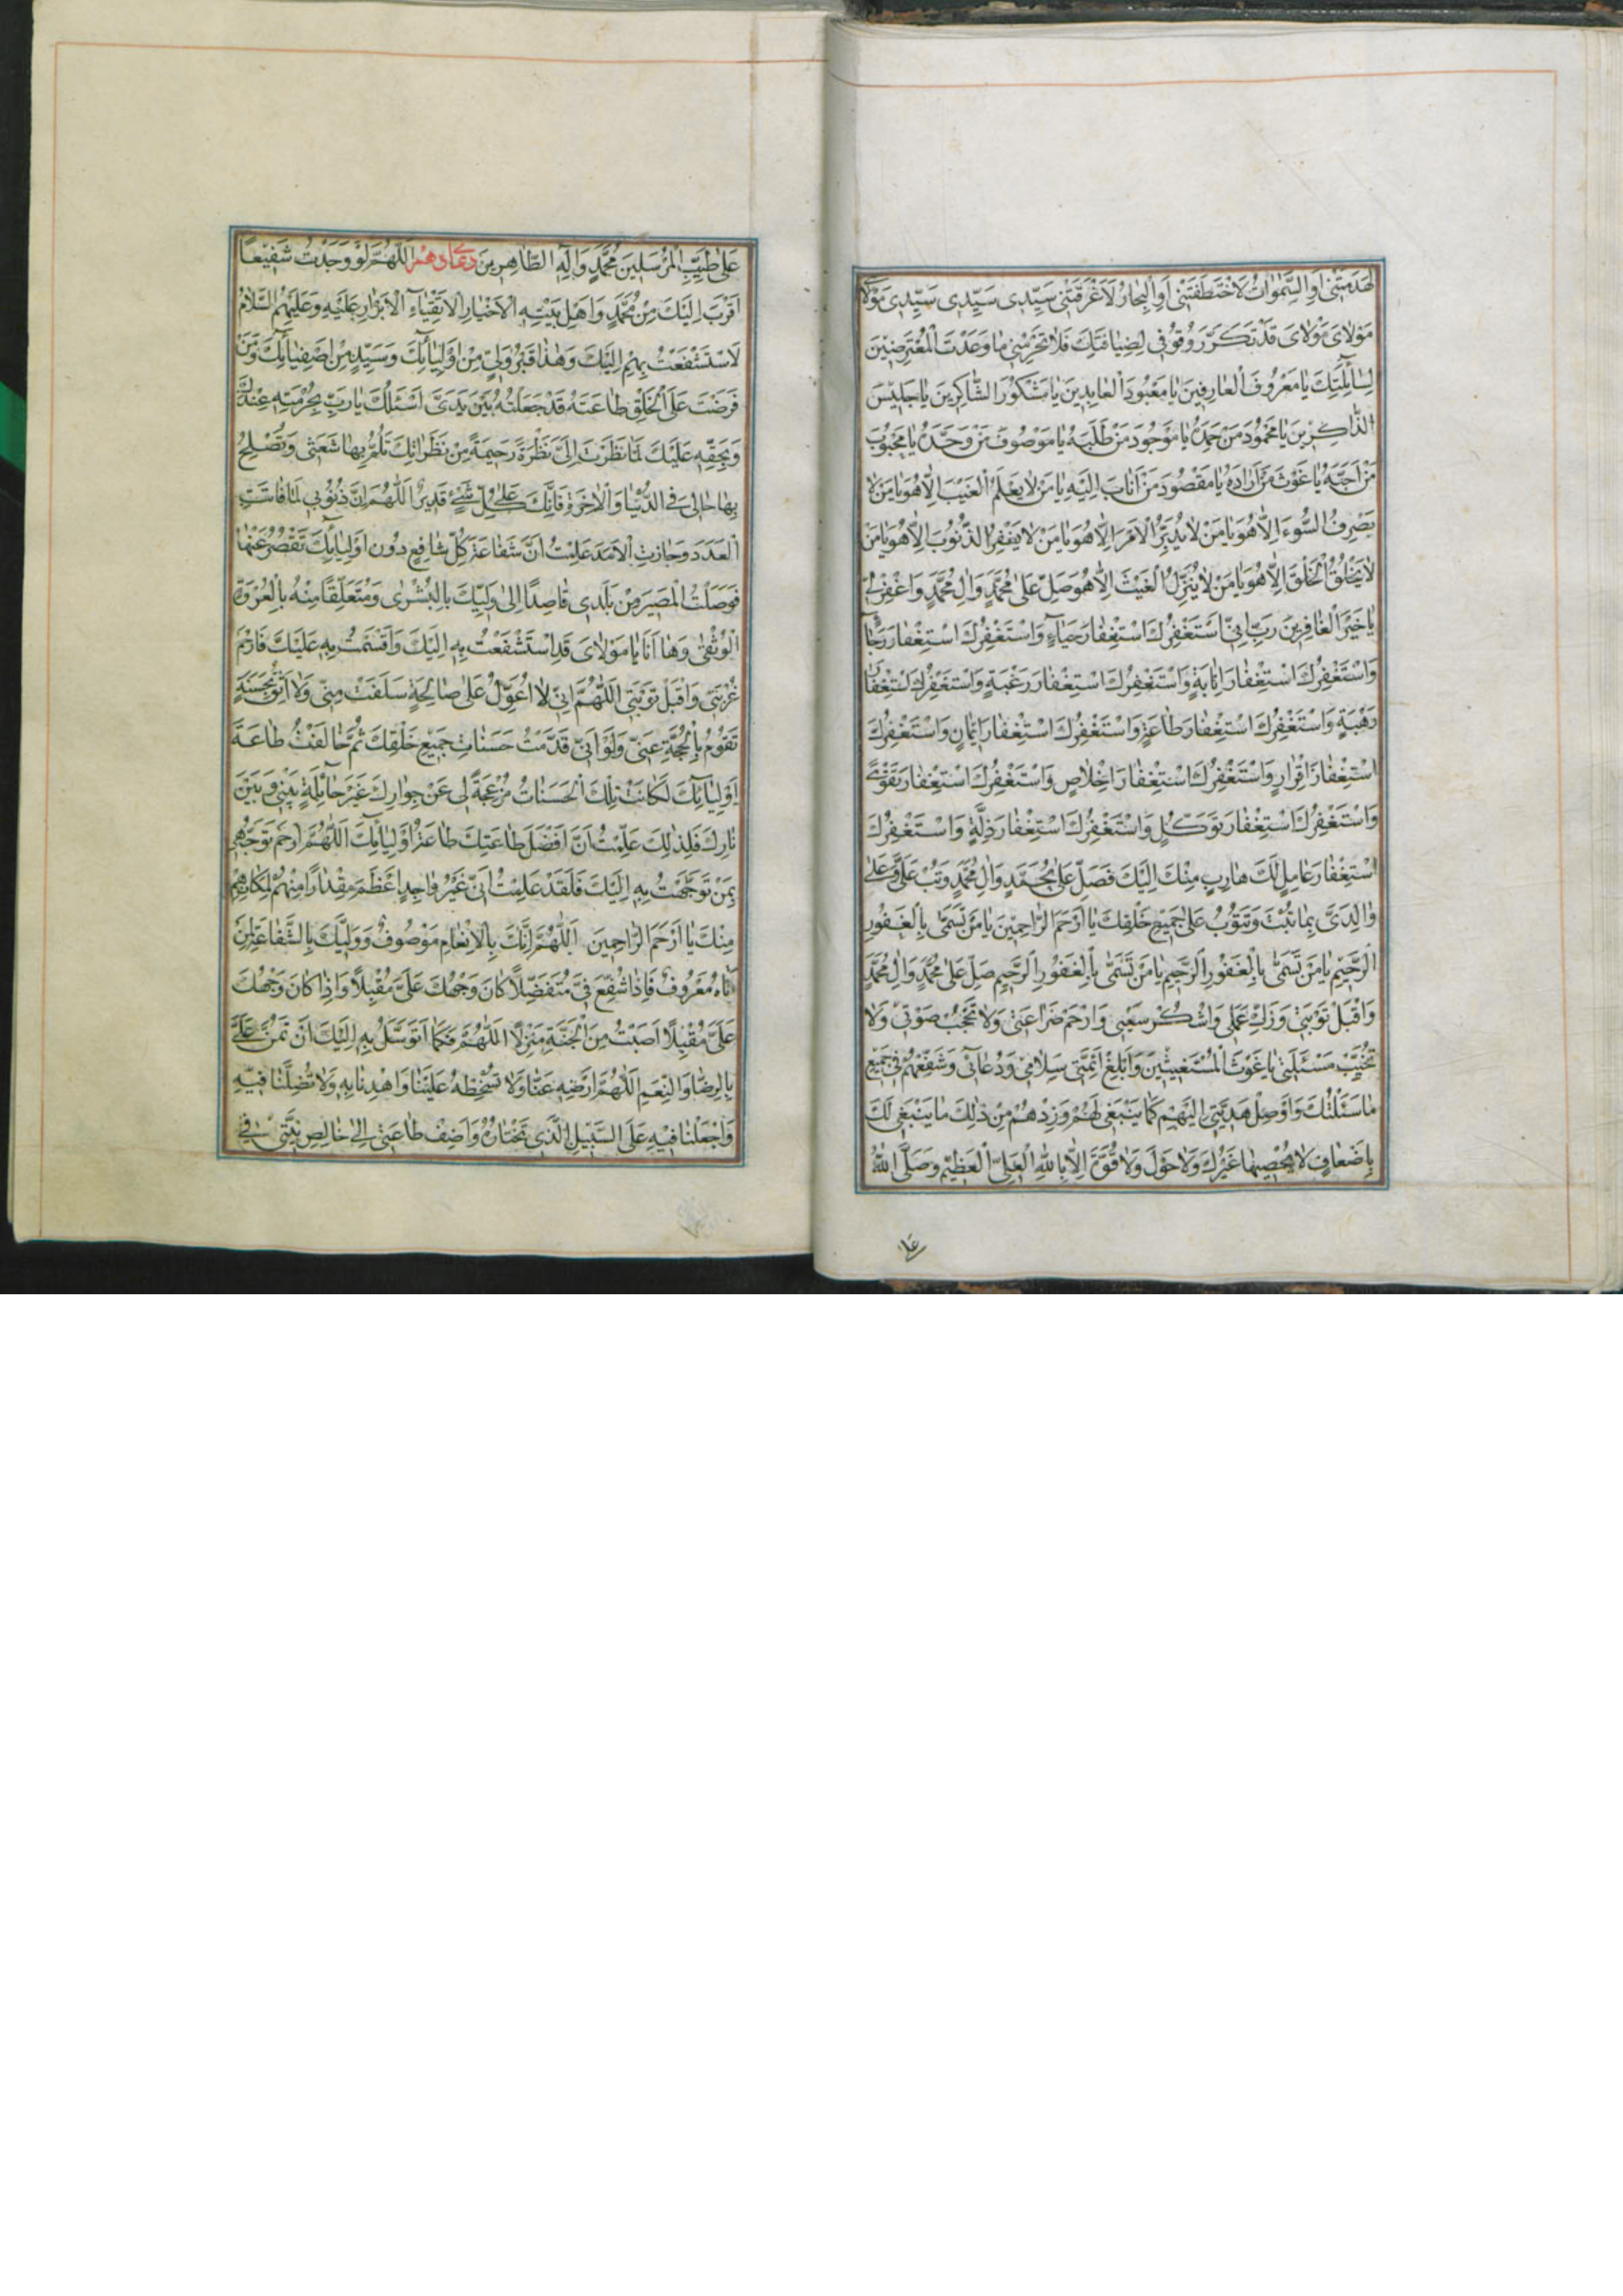 لَهَدَمَتْنی اَوِ السَّمٰوَاتُ لَاخْتَطَفَتْنی اَوِ الْبِحارُ لَاَغْرَقَتْنی سَیِّدی سَیِّدی سَیِّدی مَوْلایَ
مَوْلایَ مَوْلایَ قَدْ تَکَرَّرَ وُقُوفی لِضِیافَتِکَ فَلا تَحْرِمْنی ما وَعَدْتَ الْمُتَعَرِّضینَ
لِسَآئِلَتِکَ یا مَعْرُوفَ الْعارِفینَ یا مَعْبُودَ الْعابِدینَ یا مَشْکُورَ الشّاکِرینَ یا جَلیسَ
الذّاکِرینَ یا مَحْمُودَ مَنْ حَمِدَهُ یا مَوْجُودَ مَنْ طَلَبَهُ یا مَوْصُوفَ مَنْ وَحَّدَهُ یا مَحْبُوبَ
مَنْ اَحَبَّهُ یا غَوْثَ مَنْ اَرادَهُ یا مَقْصُودَ مَنْ اَنابَ اِلَیْهِ یا مَنْ لا یَعْلَمُ الْغَیْبَ اِلّا هُوَ یا مَنْ لا
یَصْرِفُ السُّوءَ اِلّا هُوَ یا مَنْ لا یُدَبِّرُ الْاَمْرَ اِلّا هُوَ یا مَنْ لا یَغْفِرُ الذُّنُوبَ اِلّا هُوَ یا مَنْ
لا یَخْلُقُ الْخَلْقَ اِلّا هُوَ یا مَنْ لا یُنَزِّلُ الْغَیْثَ اِلّا هُوَ صَلِّ عَلٰی مُحَمَّدٍ وَالِ مُحَمَّدٍ وَاغْفِرْ لی
یا خَیْرَ الْغافِرینَ رَبِّ اِنّی اَسْتَغْفِرُکَ اسْتِغْفارَ حَیآءٍ وَاَسْتَغْفِرُکَ اسْتِغْفارَ رَجآءٍ
وَاَسْتَغْفِرُکَ اسْتِغْفارَ اِنابَةٍ وَاَسْتَغْفِرُکَ اسْتِغْفارَ رَغْبَةٍ وَاَسْتَغْفِرُکَ اسْتِغْفارَ
رَهْبَةٍ وَاَسْتَغْفِرُکَ اسْتِغْفارَ طاعَةٍ وَاَسْتَغْفِرُکَ اسْتِغْفارَ ایمانٍ وَاَسْتَغْفِرُکَ
اسْتِغْفارَ اِقْرارٍ وَاَسْتَغْفِرُکَ اسْتِغْفارَ اِخْلاصٍ وَاَسْتَغْفِرُکَ اسْتِغْفارَ تَقْوٰی
وَاَسْتَغْفِرُکَ اسْتِغْفارَ تَوَکُّلٍ وَاَسْتَغْفِرُکَ اسْتِغْفارَ ذِلَّةٍ وَاَسْتَغْفِرُکَ
اسْتِغْفارَ عامِلٍ لَکَ هارِبٍ مِنْکَ اِلَیْکَ فَصَلِّ عَلٰی مُحَمَّدٍ وَالِ مُحَمَّدٍ وَتُبْ عَلَیَّ وَعَلٰی
والِدَیَّ بِما تُبْتَ وَتَتُوبُ عَلٰی جَمیعِ خَلْقِکَ یا اَرْحَمَ الرّاحِمینَ یا مَنْ تَسَمّٰی بِالْغَفُورِ
الرَّحیمِ یا مَنْ تَسَمّٰی بِالْغَفُورِ الرَّحیمِ یا مَنْ تَسَمّٰی بِالْغَفُورِ الرَّحیمِ صَلِّ عَلٰی مُحَمَّدٍ وَالِ مُحَمَّدٍ
وَاقْبَلْ تَوْبَتی وَزَکِّ عَمَلی وَاشْکُرْ سَعْیی وَارْحَمْ ضَراعَتی وَلا تَحْجُبْ صَوْتی وَلا
تُخَیِّبْ مَسْئَلَتی یا غَوْثَ الْمُسْتَغیثینَ وَاَبْلِغْ اَئِمَّتی سَلامی وَدُعآئی وَشَفِّعْهُمْ فی جَمیعِ
ما سَئَلْتُکَ وَاَوْصِلْ هَدِیَّتی اِلَیْهِمْ کَما یَنْبَغی لَهُمْ وَزِدْهُمْ مِنْ ذٰلِکَ ما یَنْبَغی لَکَ
بِاَضْعافٍ لا یُحْصیها غَیْرُکَ وَلا حَوْلَ وَلا قُوَّةَ اِلّا بِاللّٰهِ الْعَلِیِّ الْعَظیمِ وَصَلَّی اللّٰهُ
عَلٰی طَیِّبِ الْمُرْسَلینَ مُحَمَّدٍ وَالِهِ الطّاهِرینَ دعاء دهم اَللّٰهُمَّ لَوْ وَجَدْتُ شَفیعًا
اَقْرَبَ اِلَیْکَ مِنْ مُحَمَّدٍ وَاَهْلِ بَیْتِهِ الْاَخْیارِ الْاَتْقِیآءِ الْاَبْرارِ عَلَیْهِ وَعَلَیْهِمُ السَّلامُ
لَاسْتَشْفَعْتُ بِهِمْ اِلَیْکَ وَهٰذا قَبْرُ وَلِیٍّ مِنْ اَوْلِیآئِکَ وَسَیِّدٍ مِنْ اَصْفِیآئِکَ وَمَنْ
فَرَضْتَ عَلَی الْخَلْقِ طاعَتَهُ قَدْ جَعَلْتُهُ بَیْنَ یَدَیَّ اَسْئَلُکَ یا رَبِّ بِحُرْمَتِهِ عِنْدَکَ
وَبِحَقِّهِ عَلَیْکَ لَمّا نَظَرْتَ اِلَیَّ نَظْرَةً رَحیمَةً مِنْ نَظَراتِکَ تَلُمُّ بِها شَعَثی وَتُصْلِحُ
بِها حالی فِی الدُّنْیا وَالْاخِرَةِ فَاِنَّکَ عَلٰی کُلِّ شَیْءٍ قَدیرٌ اَللّٰهُمَّ اِنَّ ذُنُوبی لَمّا فاتَتِ
الْعَدَدَ وَجازَتِ الْاَمَدَ عَلِمْتُ اَنَّ شَفاعَةَ کُلِّ شافِعٍ دُونَ اَوْلِیآئِکَ تَقْصُرُ عَنْها
فَوَصَلْتُ الْمَصیرَ مِنْ بَلَدی قاصِدًا اِلٰی وَلِیِّکَ بِالْبُشْرٰی وَمُتَعَلِّقًا مِنْهُ بِالْعُرْوَةِ
الْوُثْقٰی وَها اَنَا یا مَوْلایَ قَدِ اسْتَشْفَعْتُ بِهِ اِلَیْکَ وَاَقْسَمْتُ بِهِ عَلَیْکَ فَارْحَمْ
غُرْبَتی وَاقْبَلْ تَوْبَتی اَللّٰهُمَّ اِنّی لا اُعَوِّلُ عَلٰی صالِحَةٍ سَلَفَتْ مِنّی وَلا اَثِقُ بِحَسَنَةٍ
تَقُومُ بِالْحُجَّةِ عَنّی وَلَوْ اَنّی قَدَّمْتُ حَسَناتِ جَمیعِ خَلْقِکَ ثُمَّ خالَفْتُ طاعَةَ
اَوْلِیآئِکَ لَکانَتْ تِلْکَ الْحَسَناتُ مُزْعِجَةً لی عَنْ جِوارِکَ غَیْرَ حآئِلَةٍ بَیْنی وَبَیْنَ
نارِکَ فَلِذٰلِکَ عَلِمْتُ اَنَّ اَفْضَلَ طاعَتِکَ طاعَةُ اَوْلِیآئِکَ اَللّٰهُمَّ ارْحَمْ تَوَجُّهی
بِمَنْ تَوَجَّهْتُ بِهِ اِلَیْکَ فَلَقَدْ عَلِمْتُ اَنّی غَیْرُ واجِدٍ اَعْظَمَ مِقْدارًا مِنْهُمْ لِمَکانِهِمْ
مِنْکَ یا اَرْحَمَ الرّاحِمینَ اَللّٰهُمَّ اِنَّکَ بِالْاِنْعامِ مَوْصُوفٌ وَوَلِیُّکَ بِالشَّفاعَةِ لِمَنْ
اَتاهُ مَعْرُوفٌ فَاِذا شُفِّعَ فِیَّ مُتَفَضِّلًا کانَ وَجْهُکَ عَلَیَّ مُقْبِلًا وَاِذا کانَ وَجْهُکَ
عَلَیَّ مُقْبِلًا اَصَبْتُ مِنَ الْجَنَّةِ مَنْزِلًا اَللّٰهُمَّ فَکَما اَتَوَسَّلُ بِهِ اِلَیْکَ اَنْ تَمُنَّ عَلَیَّ
بِالرِّضا وَالنِّعَمِ اَللّٰهُمَّ ارْضِهِ عَنّا وَلا تُسْخِطْهُ عَلَیْنا وَاهْدِنا بِهِ وَلا تُضِلَّنا فیهِ
وَاجْعَلْنا فیهِ عَلَی السَّبیلِ الَّذی تَخْتارُهُ وَاَضِفْ طاعَتی اِلٰی خالِصِ نِیَّتی فی